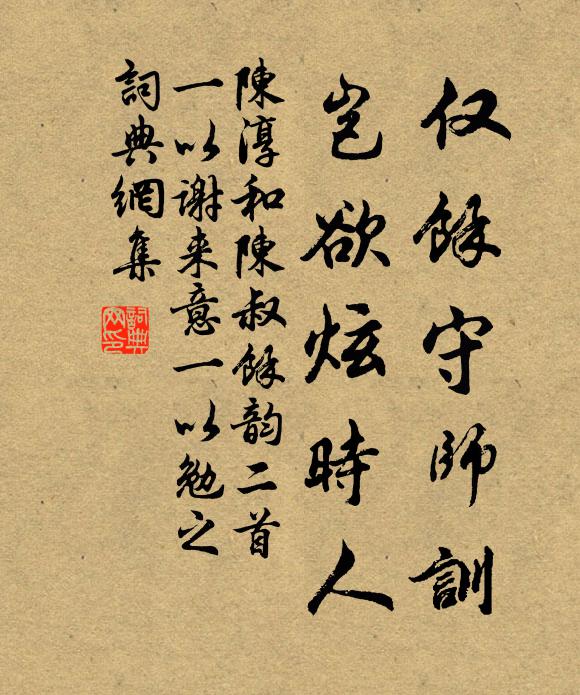 仅餘守師訓
豈欲炫時人
陳淳和陳叔餘韵二首
一以謝来意一以勉之
詞典網集
詞典网印